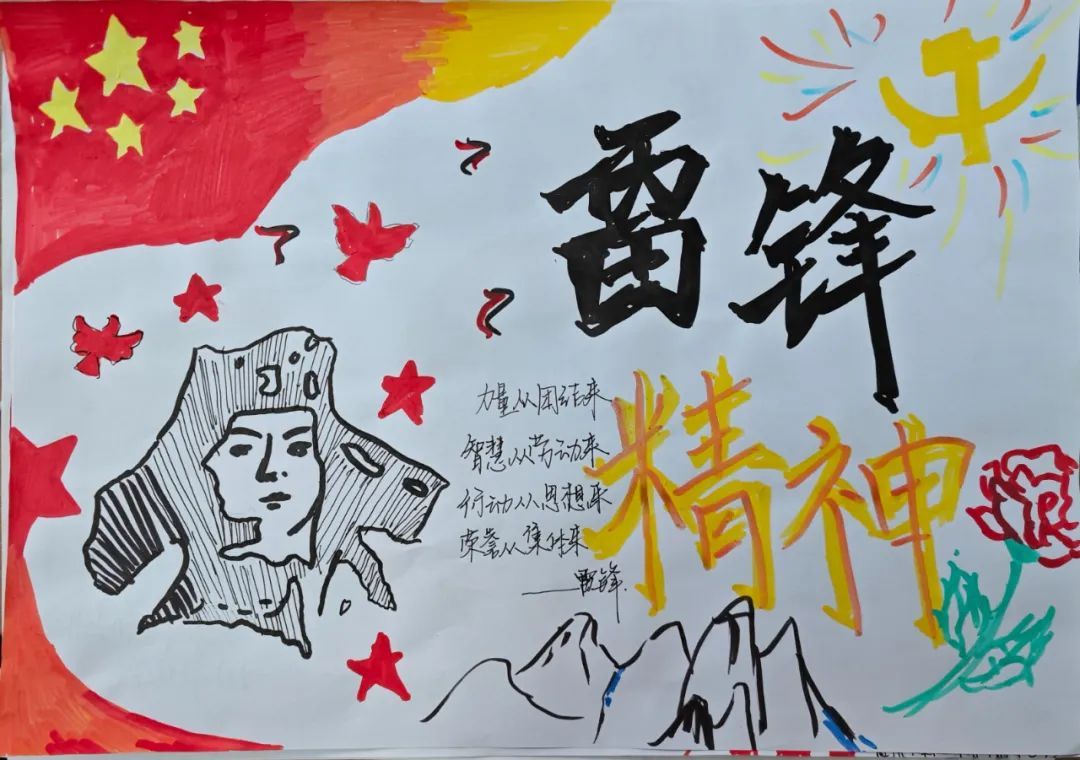 雷锋
精神
力量从团结来
智慧从劳动来
行动从思想来
荣誉从集体来
——雷锋